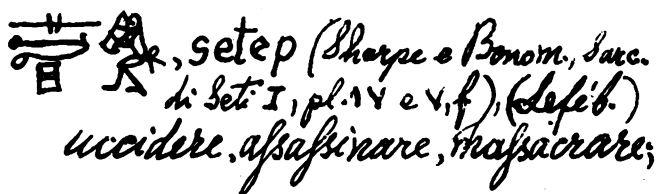 , setep (Sharpe e Bonom, Sarc.
di Seti I, pl. IV e V, f), (Leféb.)
uccidere, assassinare, massacrare;